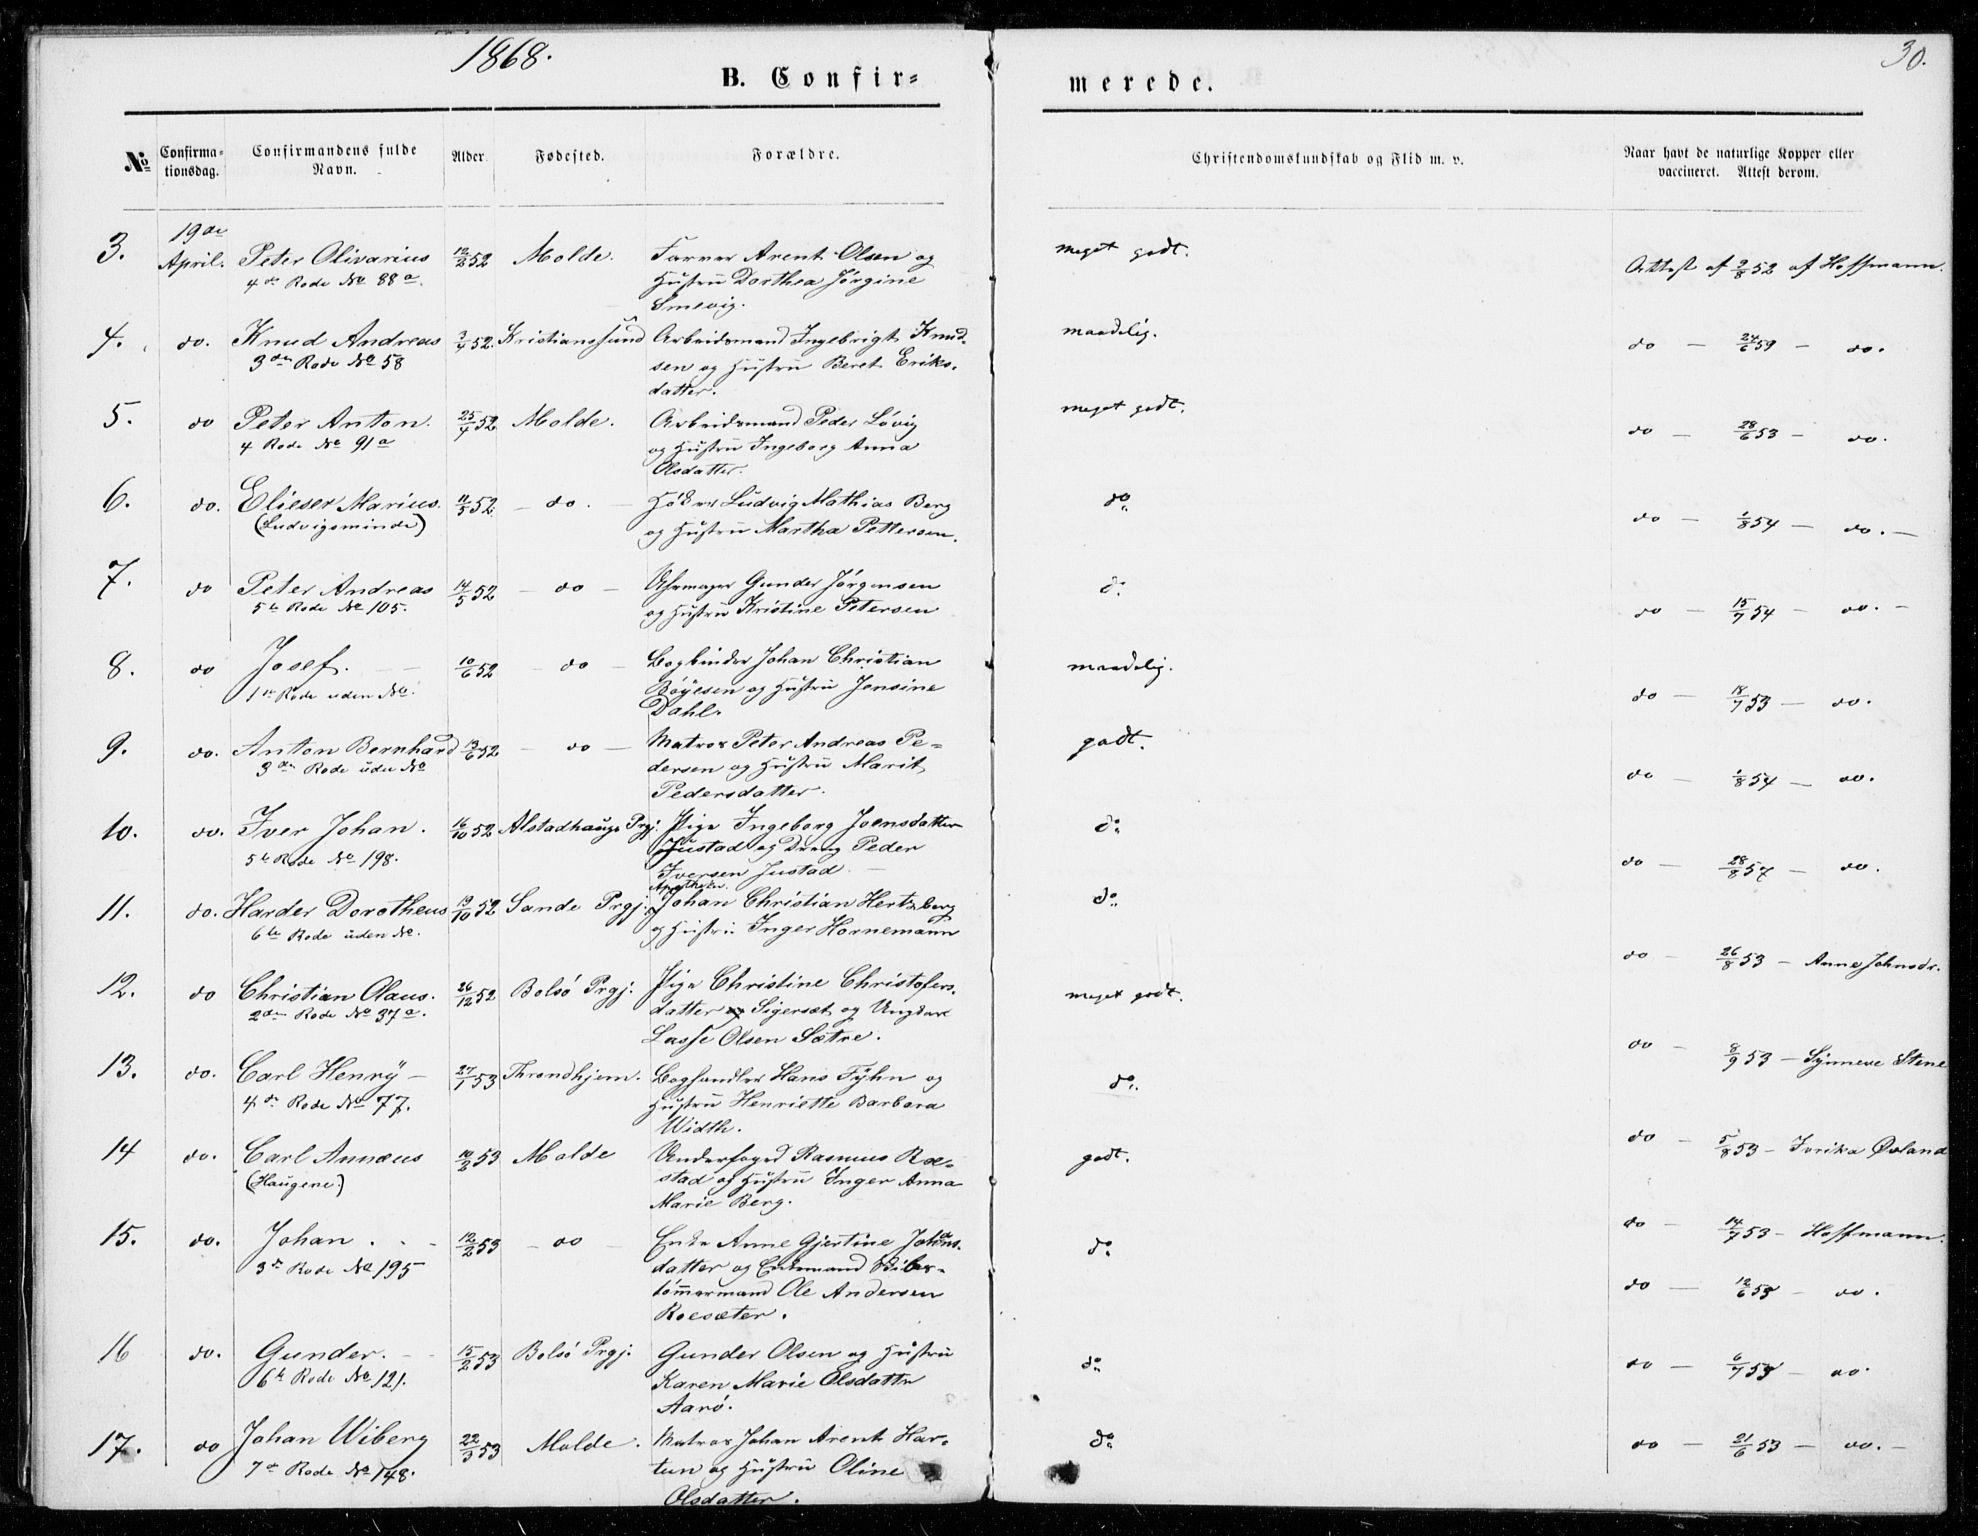 1868.
30.
B. Confir=
merede.
No
Confirma-
tionsdag.
Confirmandens fulde
Navn.
Alder.
Fødested.
Forældre.
Christendomskundskab og Flid m. v.
Naar havt de naturlige Kopper eller
vaccineret. Attest derom.
3. 19de April. Peter Olivarius 12/2 52 Molde. Farver Arent Olsen og meget godt. Attest af 9/8 52 af Hoffmann.
4de Rode No 88a. Hustru Dorthea Jørgine
Smevig.
4. do. Knud Andreas 3/4 52. Kristianssund Arbeidsmand Ingebrigt Knud- maadelig. do — 24/6 59 — do.
3de Rode No 58 sen og Hustru Beret Eriks-
datter.
5. do Peter Anton. 25/4 52. Molde. Arbeidsmand Peder Løvig meget godt. do — 28/6 53 — do.
4 Rode No 91a og Hustru Ingeborg Anna
Olsdatter.
6. do. Elieser Marius. 11/5 52 — do. — Høker Ludvig Mathias Berg do do — 1/8 54 — do. —
(Ludvigsminde) og Hustru Martha Pettersen.
7. do Peter Andreas 14/5 52 — do — Uhrmager Gunder Jørgensen do do — 15/7 54 — do. —
5te Rode No 105. og Hustru Kristine Petersen
8. do Josef. — — 10/6 52 — do — Bogbinder Johan Christian maadelig. do — 18/7 53 — do.
1ste Rode uden No. Böyesen og Hustru Jensine
Dahl.
9. do. Anton Bernhard 13/6 52 — do — Matros Peter Andreas Pe= godt. do — 1/8 54 — do.
3de Rode uden No dersen og Hustru Marit
Pedersdatter.
10. do. Iver Johan. 16/10 52 Alstadhaugs Prgj. Pige Ingeborg Joensdatter do do — 28/8 57 — do.
5te Rode No 198. Justad og Dreng Peder
Iversen Justad —
11. do. Harder Dorotheus 19/10 52 Sande Prgj. Apotheker Johan Christian Hertzberg do do — 26/8 53 — Anne Johnsdr.
6te Rode uden No. og Hustru Inger Hornemann
12. do Christian Olaus. 26/12 52 Bolsø Prgj. Pige Christine Christofers- meget godt. do — 8/9 53 — Synneve Stene
2den Rode No 37a. datter Sigerset og Ungkarl
Lasse Olsen Sætre.
13. do. Carl Henry — 27/1 53 Throndhjem. Boghandler Hans Fyhn og do. do — 5/8 53 —
4de Rode No 77. Hustru Henriette Barbara
Width.
14 do. Carl Annæus 10/2 53 Molde Underfoged Rasmus Roe- godt. do — 14/7 53 — Hoffmann.
(Haugene.) stad og Hustru Inger Anna
Marie Berg.
15. do. Johan . . — 12/2 53 — do — Enke Anne Gjertine Johans- do do — 12/6 53 — do.
3de Rode No 195 datter og Enkemand Skibs-
tømmermand Ole Andersen
Roesæter.
16 do. Gunder. — 15/2 53 Bolsø Prgj. Gunder Olsen og Hustru do do — 6/7 53 — do.
6te Rode No 121. Karen Marie Olsdatter
Aarø.
17. do Johan Wiberg 22/3 53 Molde. Matros Johan Arent Har- do do — 21/6 53 — do. —
7de Rode No 148. tun og Hustru Oline
Olsdatter.